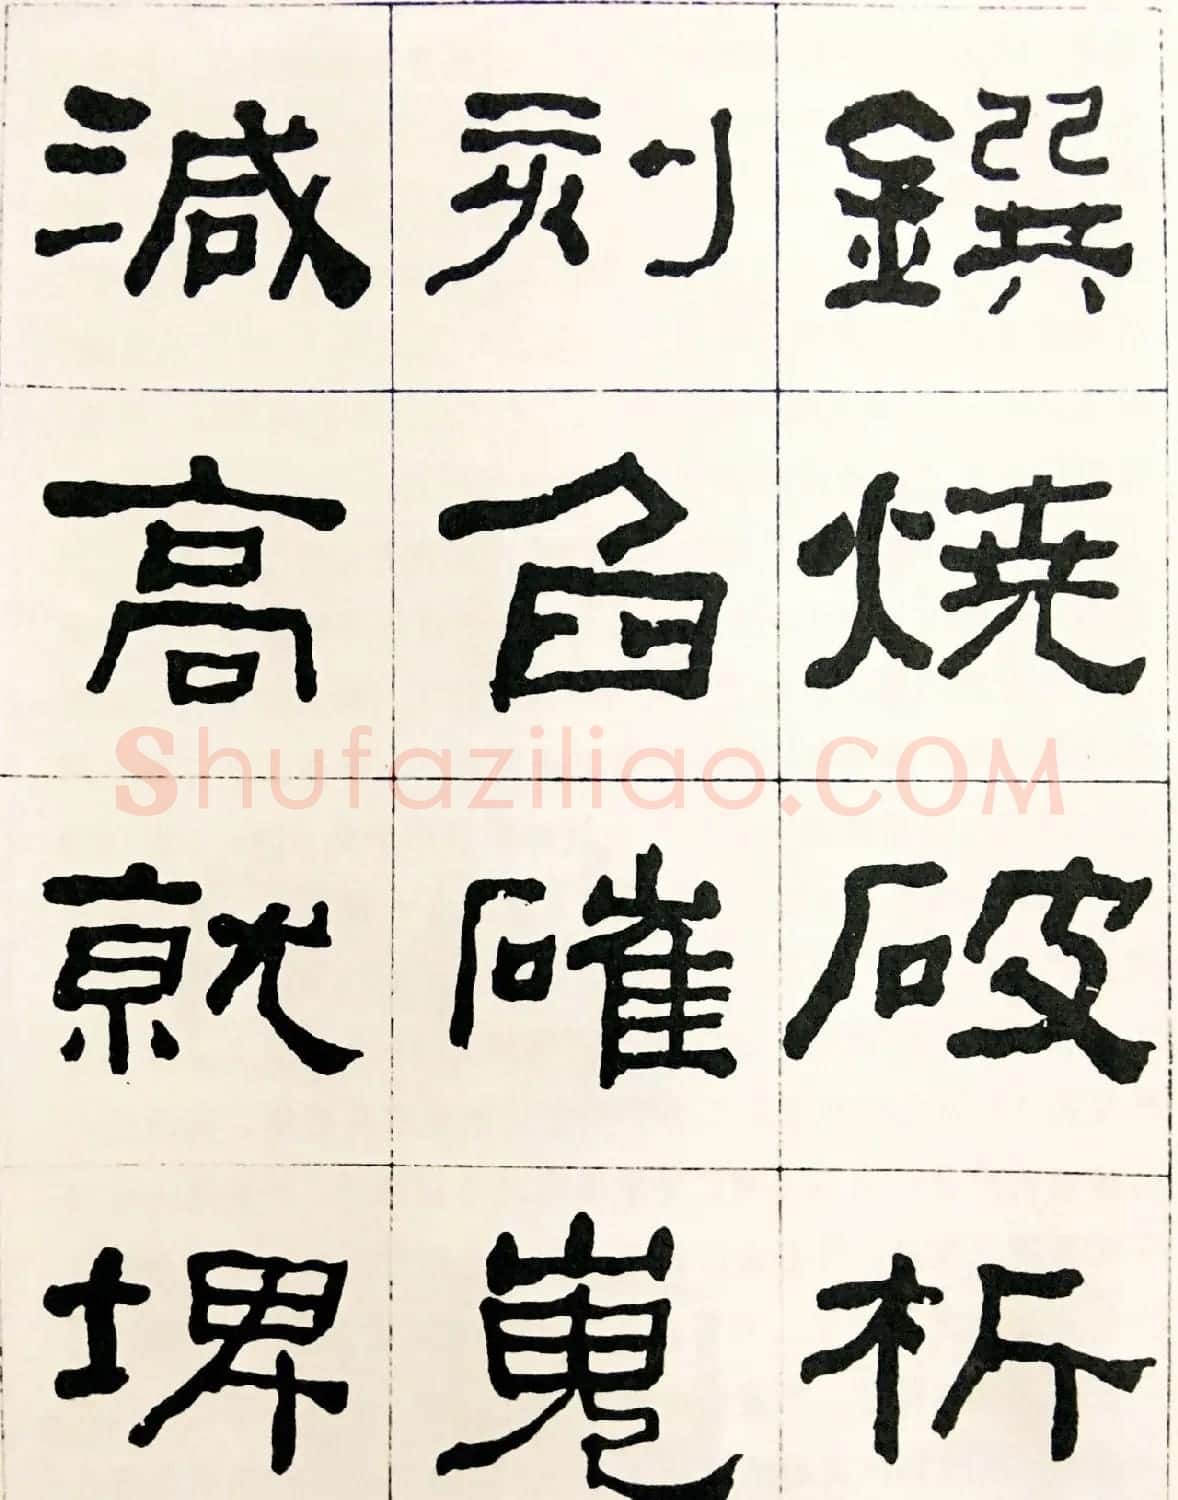 鐉燒破析
刻臽磪嵬
減高就埤
Shufaziliao.COM